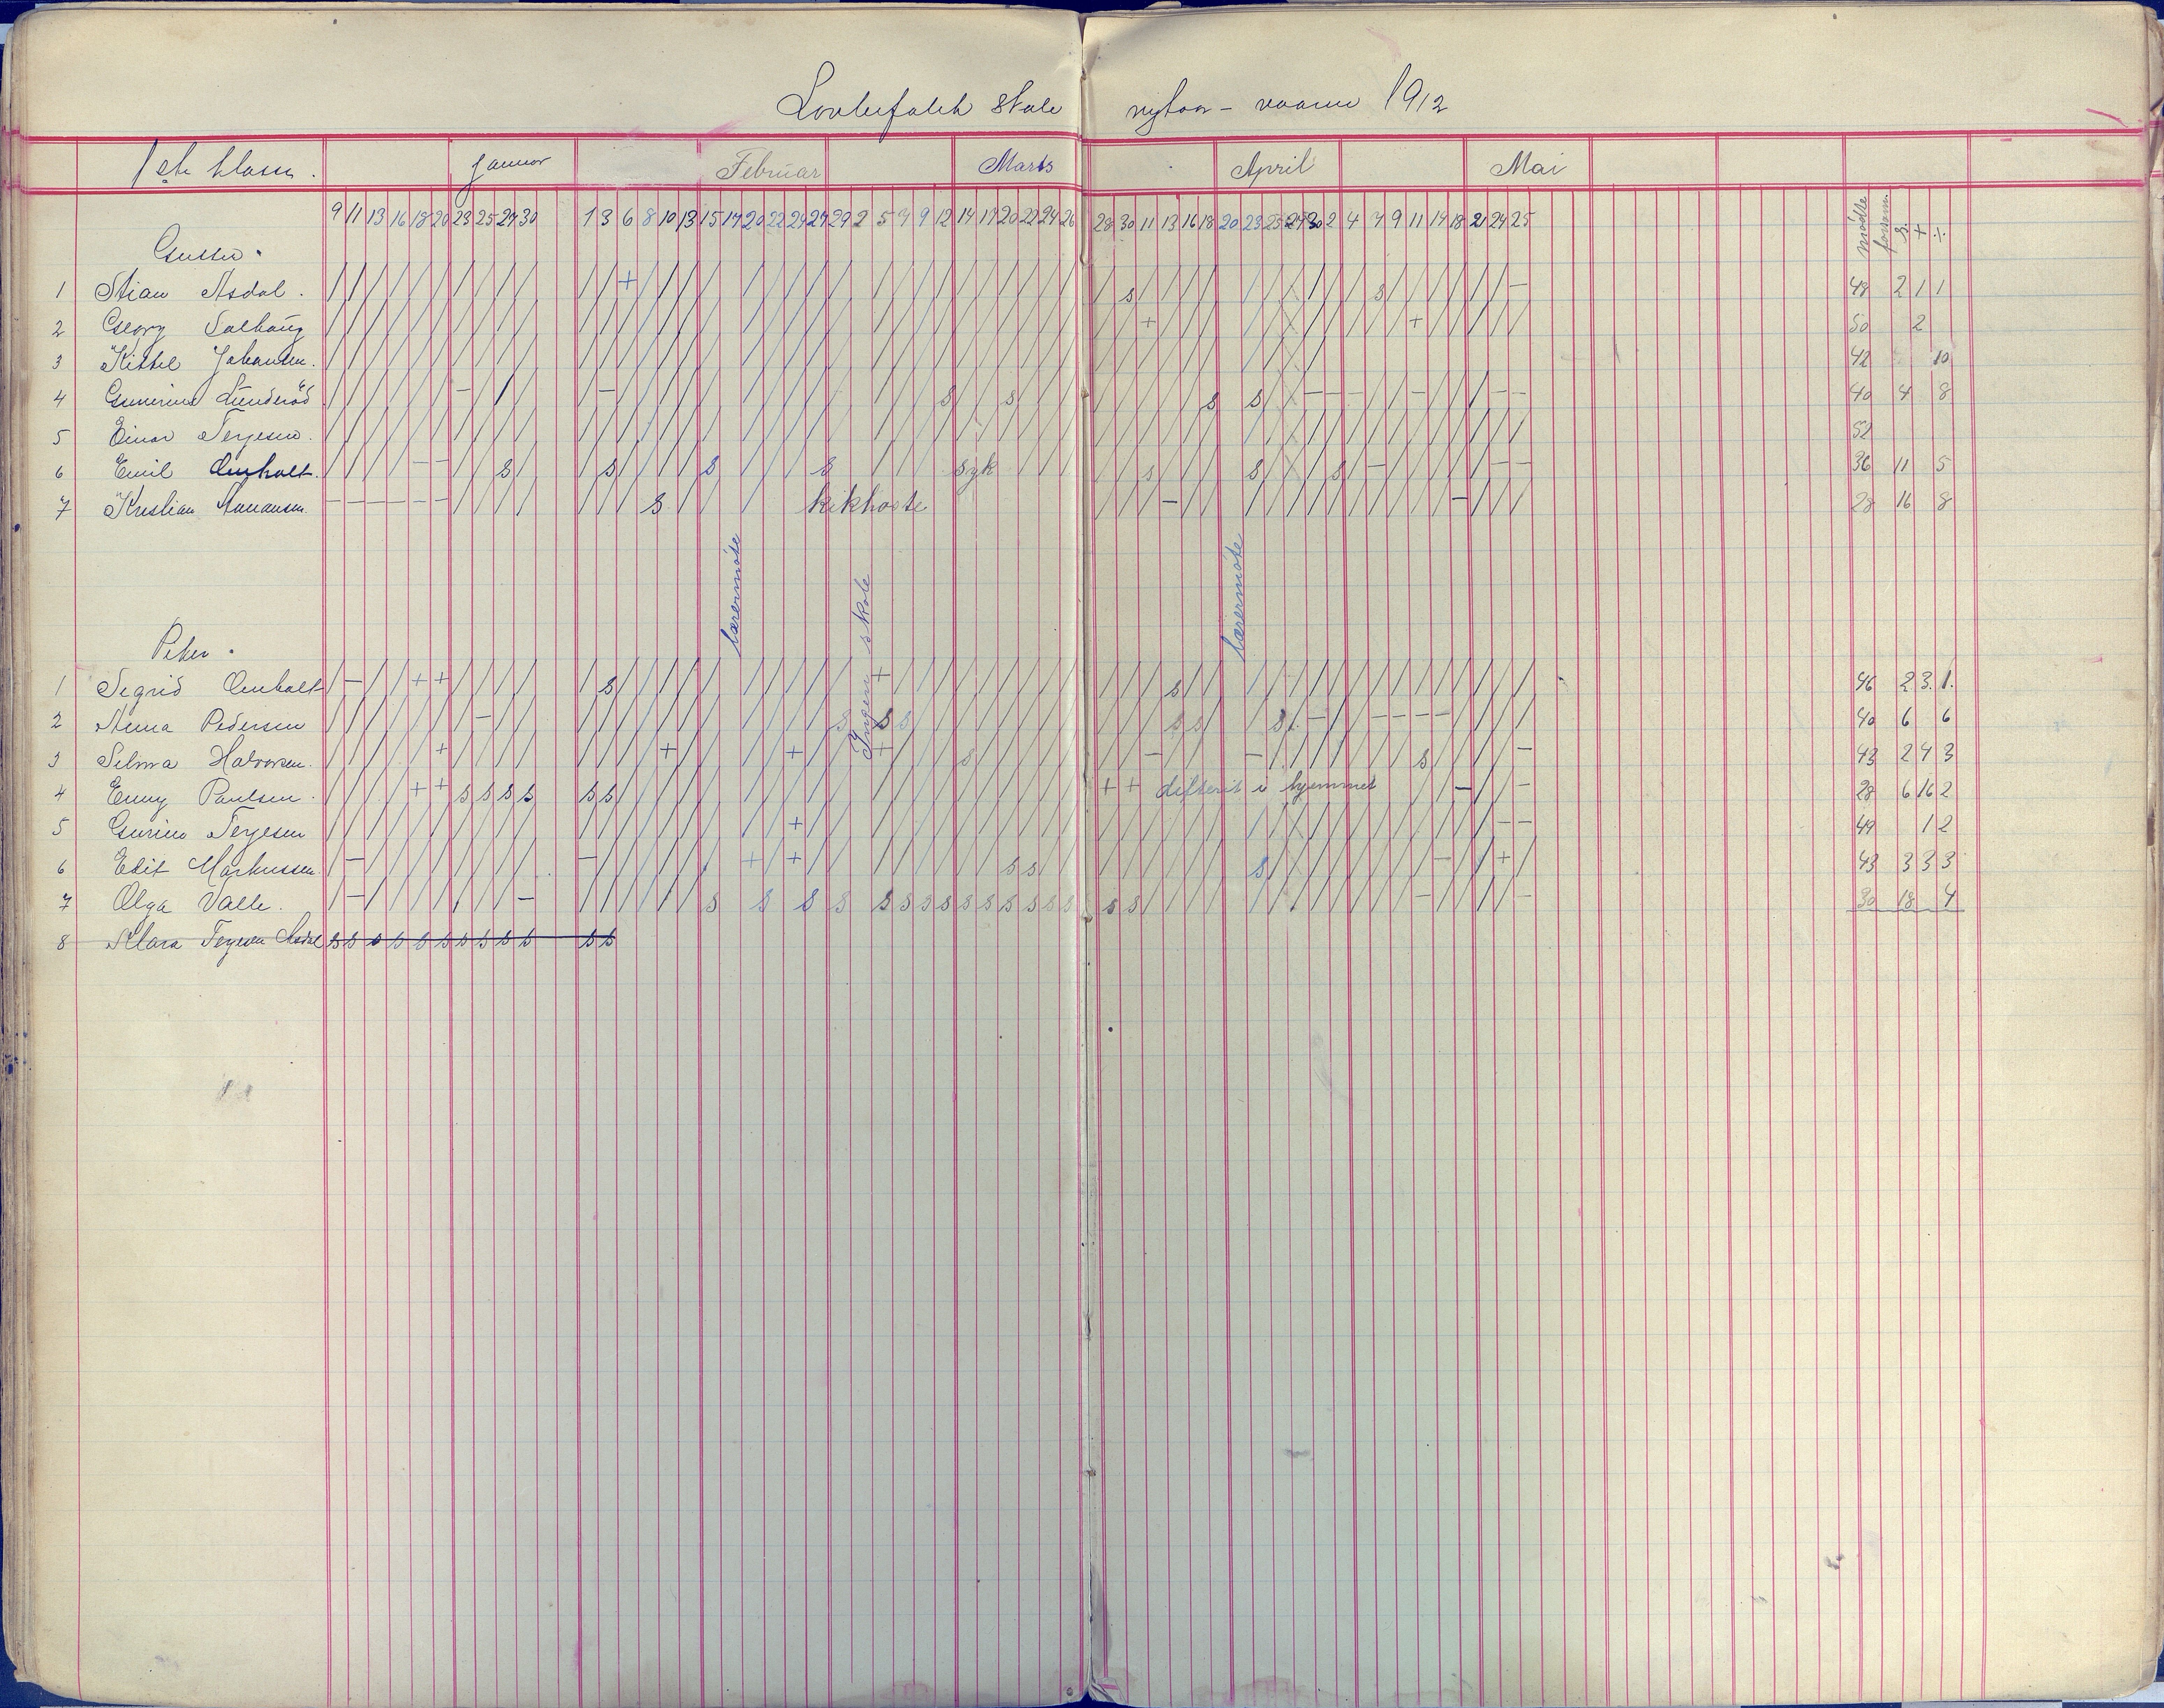 skole nytaar - vaaren 1912
1ste klasse. Januar Februar Marts April Mai
9 11 13 16 18 20 23 25 27 30 1 3 6 8 10 13 15 17 20 22 24 27 29 2 5 7 9 12 14 17 20 22 24 26 28 30 11 13 16 18 20 23 25 27 30 2 4 7 9 11 14 18 21 24 25 mödte forsømm s. + ÷
Gutter.
1 Stian Asdal. / / / / / / / / / / / / + s s - 48 2 1 1
2 Georg Solhaug + + 50 2
3 Kittel Johansen. 42 10
4 Gunerius Lunderöd - - s s s s - - - - - - 40 4 8
5 Einar Terjesen. 52
6 Emil Omholt. - - s s s s syk s s s - - - 36 11 5
7 Kristian Aanonsen. - - - - - - s kikhoste - - 28 16 8
lærermöte
Ingen skole
lærermöte
Piker.
1 Sigrid Omholt - + + s + s 46 2 3. 1.
2 Anna Pedersen - s s s s s s - - - - - 40 6 6
3 Selma Halvorsen. + + + + s - - s - 43 2 4 3
4 Enny Paulsen. + + s s s s s s + + difterit i hjemmet - - 28 6 16 2
5 Gurine Terjesen + - - 49 1 2
6 Edit Markussen. - - + + s s s - + 43 3 3 3
7 Olga Valle. - - s s s s s s s s s s s s s s s s - - 30 18 4
8 Klara Terjesen Asdal s s s s s s s s s s s s